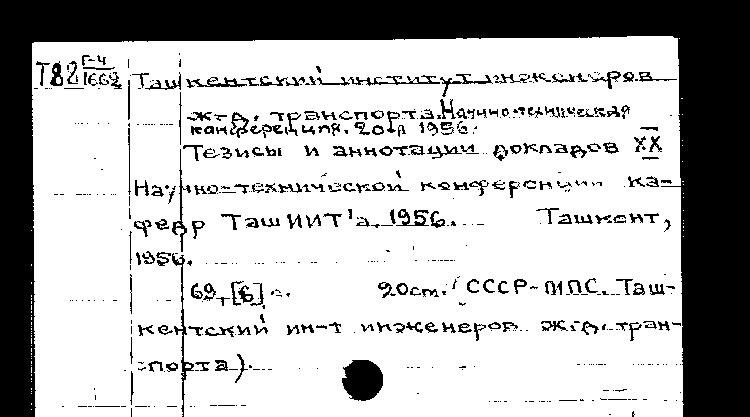 Т82 Г-4
1662
Ташкентский институт инженеров
ж-д. транспорта. Научно-техническая
конференция. 20-я 1956.
Тезисы и аннотации докладов XX
Научно-технической конференции ка-
федр ТашИИТ'а. 1956. Ташкент,
1956.
69, [6] с. 20см. (СССР-МПС. Таш-
кентский ин-т инженеров ж.-д. тран-
спорта).